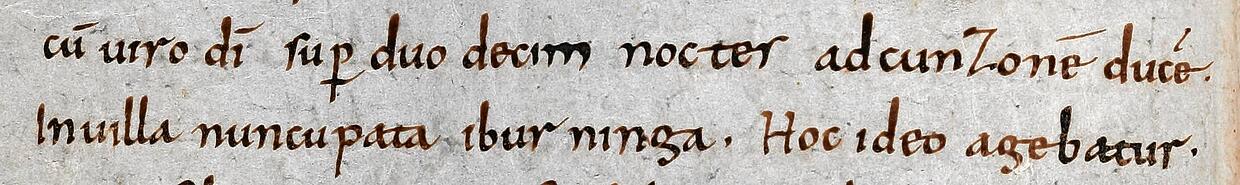 cū uiro dī sup̲ duo decim noctes adcunzonē ducē.
Inuilla nuncupata ibur ninga. Hoc ideo agebatur.